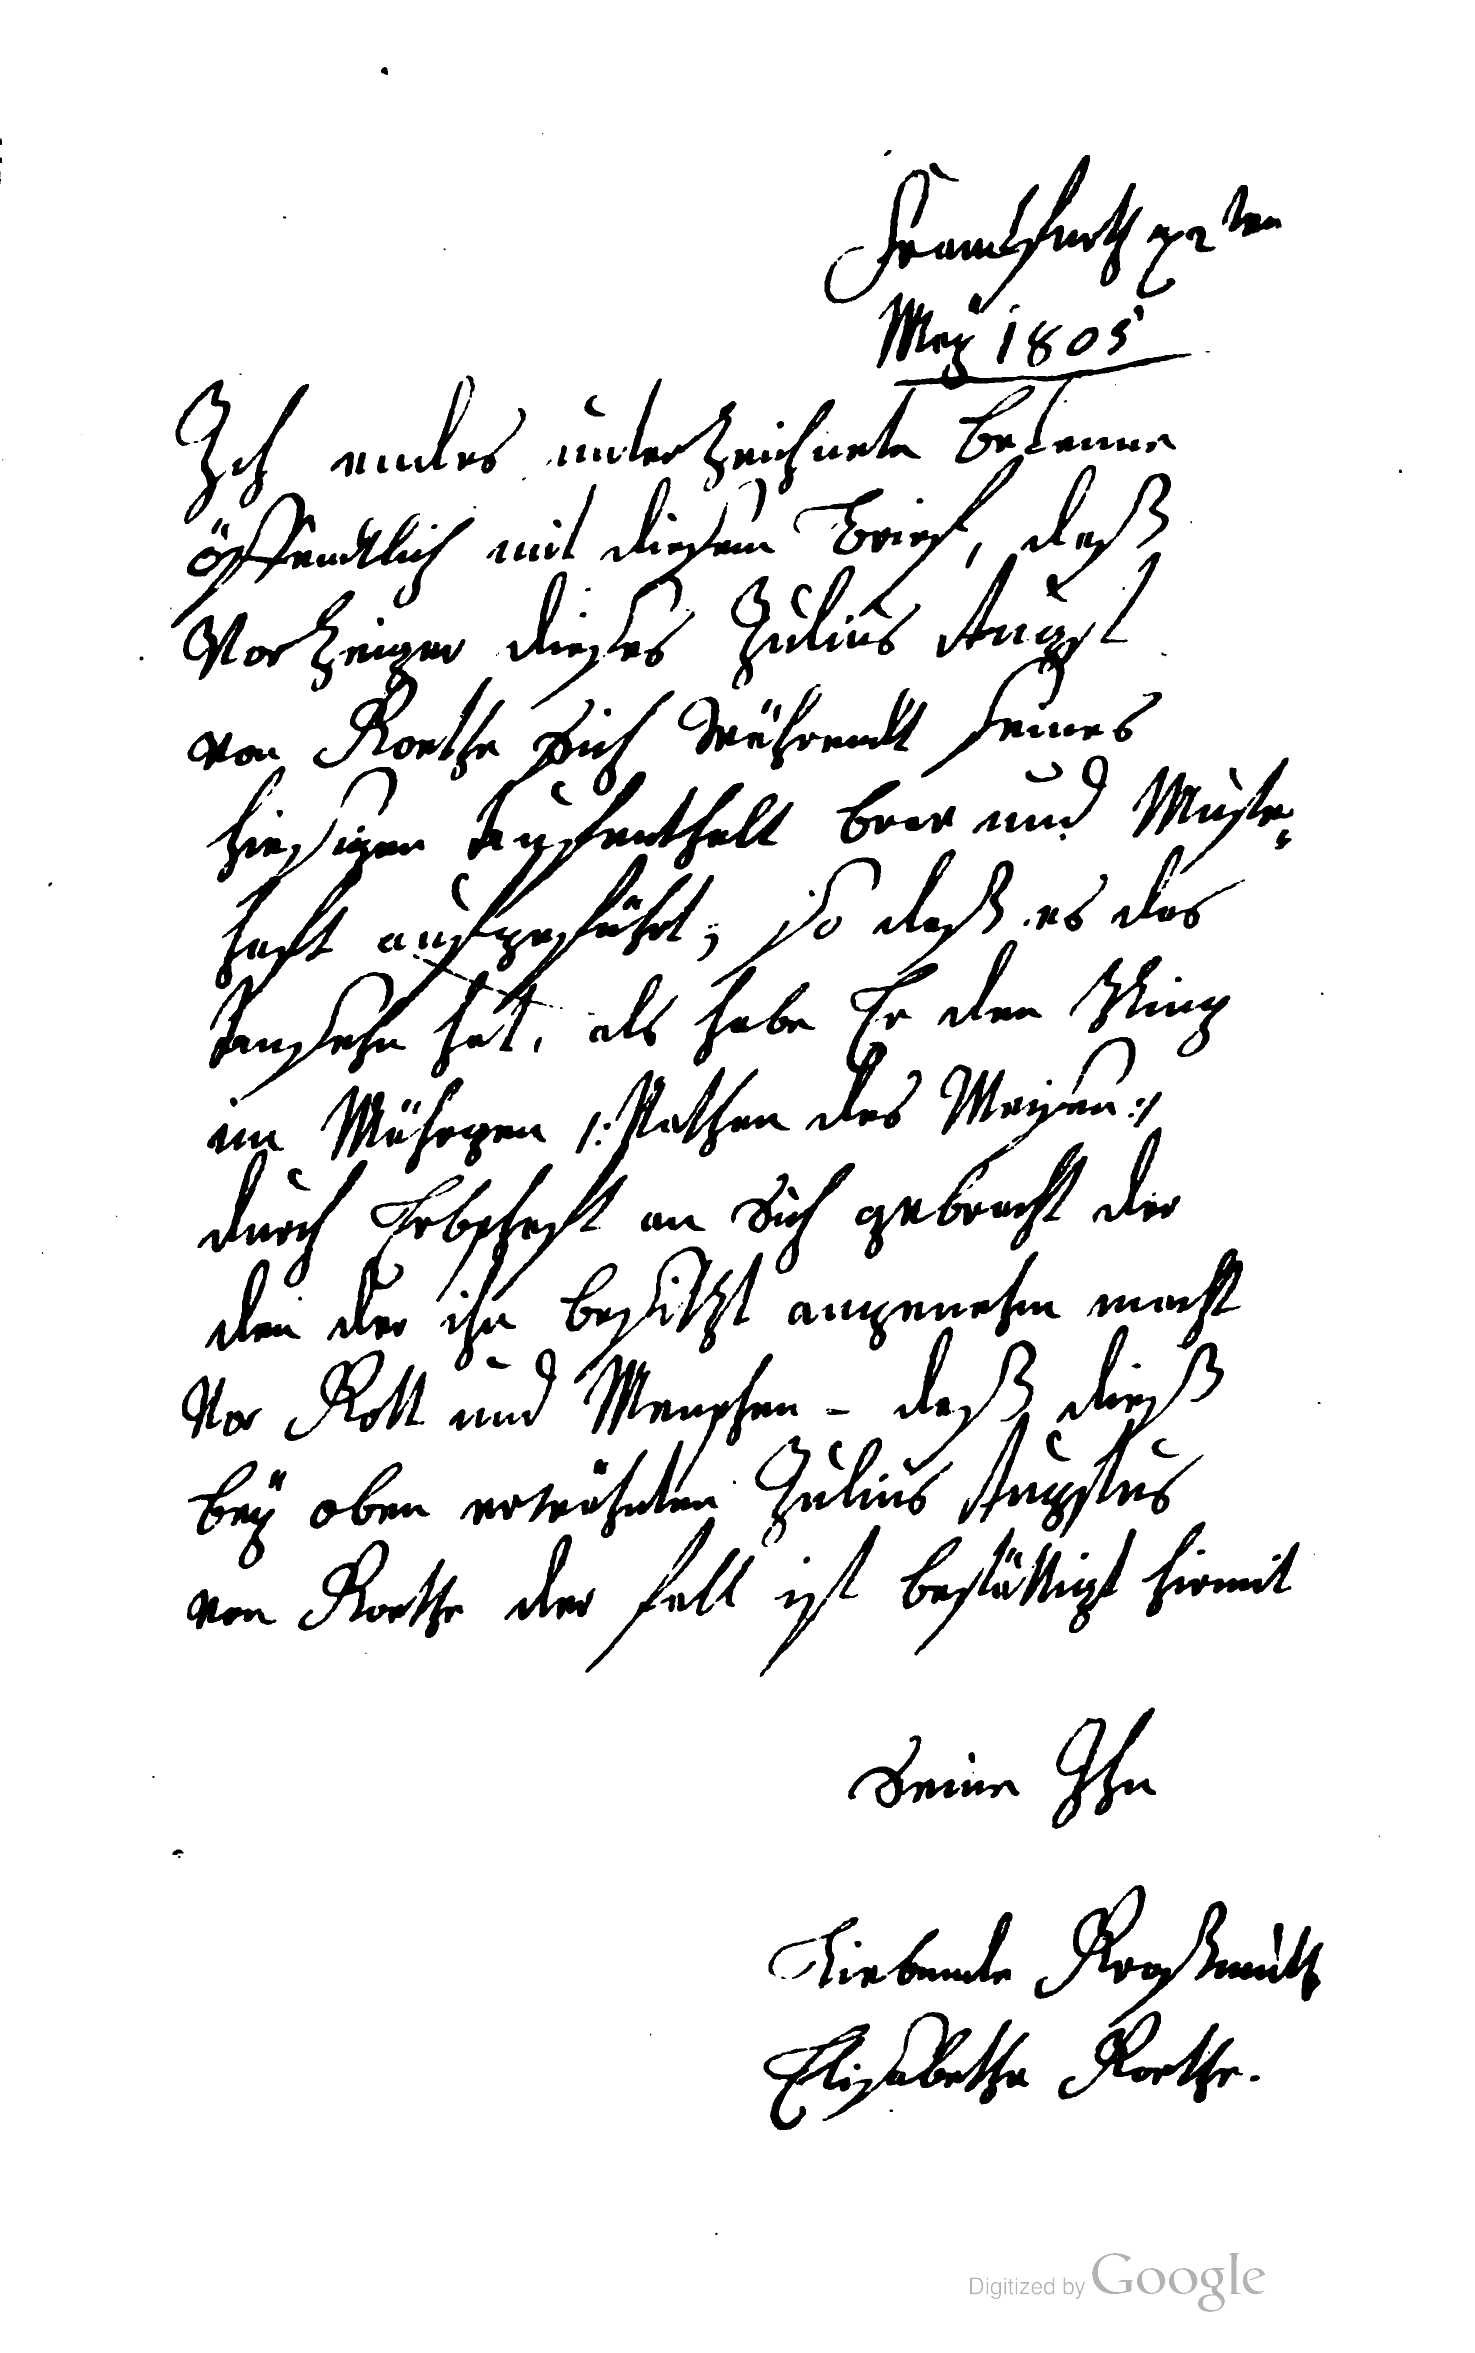 Franckfurth
Mey 1805
Ich endes unterzeichnete bekenne
öffendtlich mit diesem Brief, daß
Vorzeiger dieses Julius Augst
von Goethe sich währendt seines
hiesigen Auffenthalt brav und Muster=
haft aufgeführt; so daß es das
Ansehn hat, als habe Er den Ring
im Mährgen /: Nathan des Weisen :/
durch Erbschaft an sich gebracht der
den der ihn besitzt angenehm macht
vor Gott und Menschen – daß dieß
bey oben erwähnten Julius Augstus
von Goethe der Fall ist bestättigt hirmit
Seine Ihn
Liebende Großmutter
Elisabetha Goethe.
Digitized by Google